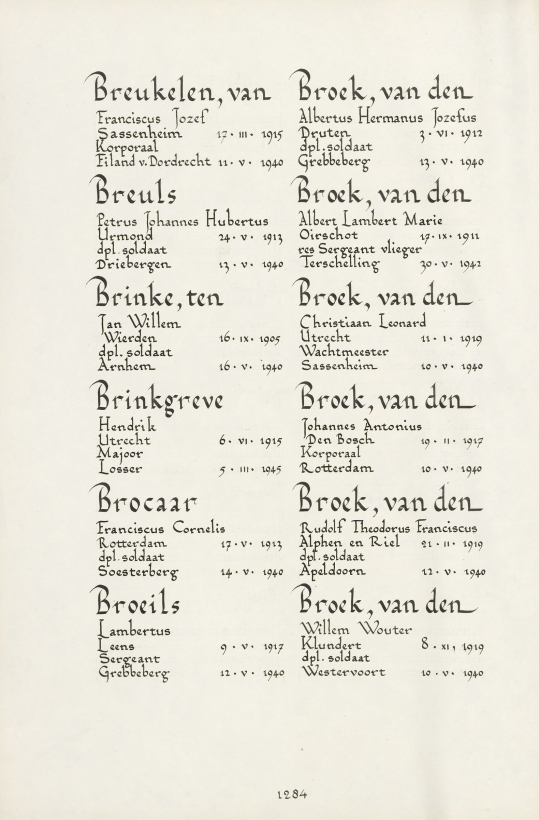 Breukelen, van
Franciscus Jozef
Sassenheim 17 · III · 1915
Korporaal
Eiland v. Dordrecht 11 · V · 1940
Breuls
Petrus Johannes Hubertus
Urmond 24 · V · 1913
dpl. soldaat
Driebergen 13 · V · 1940
Brinke, ten
Jan Willem
Wierden 16 · IX · 1905
dpl. soldaat
Arnhem 16 · V · 1940
Brinkgreve
Hendrik
Utrecht 6 · VI · 1915
Majoor
Losser 5 · III · 1945
Brocaar
Franciscus Cornelis
Rotterdam 17 · V · 1913
dpl. soldaat
Soesterberg 14 · V · 1940
Broeils
Lambertus
Leens 9 · V · 1917
Sergeant
Grebbeberg 12 · V · 1940
Broek, van den
Albertus Hermanus Jozefus
Druten 3 · VI · 1912
dpl. soldaat
Grebbeberg 13 · V · 1940
Broek, van den
Albert Lambert Marie
Oirschot 17 · IX · 1911
res Sergeant vlieger
Terschelling 30 · V · 1942
Broek, van den
Christiaan Leonard
Utrecht 11 · I · 1919
Wachtmeester
Sassenheim 10 · V · 1940
Broek, van den
Johannes Antonius
Den Bosch 19 · II · 1917
Korporaal
Rotterdam 10 · V · 1940
Broek, van den
Rudolf Theodorus Franciscus
Alphen en Riel 21 · II · 1919
dpl. soldaat
Apeldoorn 12 · V · 1940
Broek, van den
Willem Wouter
Klundert 8 · XI, 1919
dpl. soldaat
Westervoort 10 · V · 1940
1284